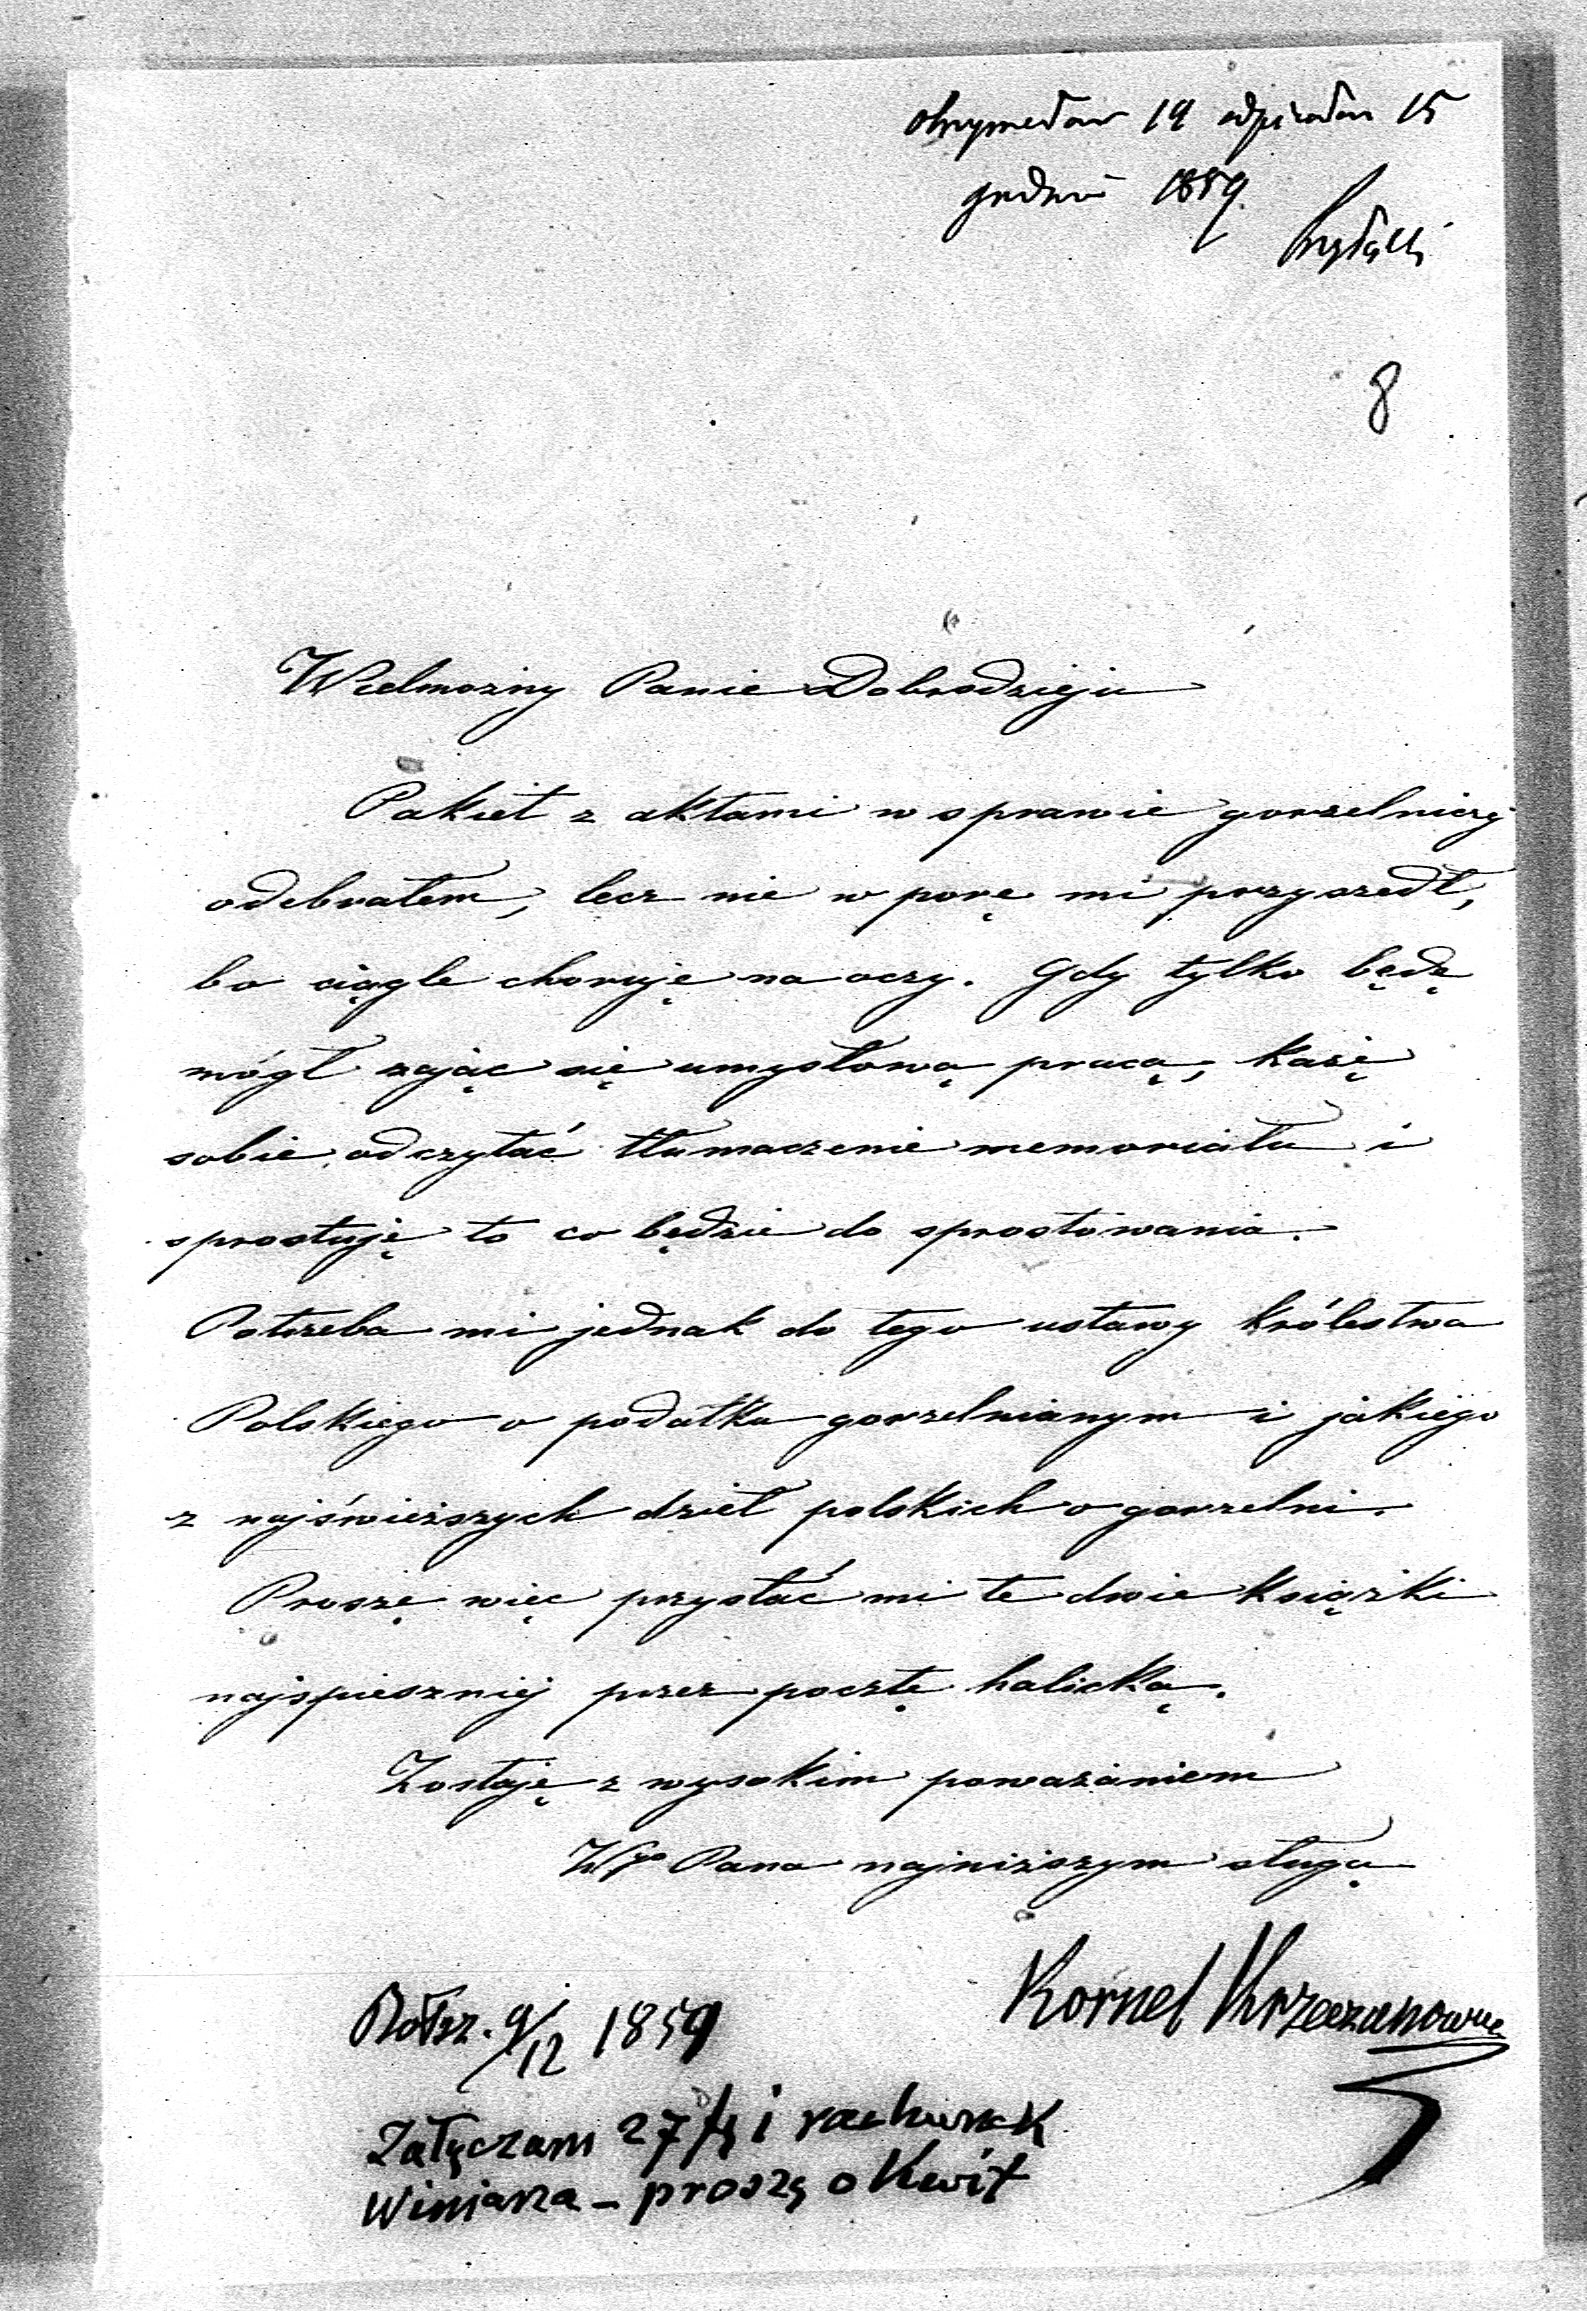 otrzymałem 14 odpisałem 15
grudnia 1859.
8
Wielmożny Panie Dobrodzieju
Pakiet z aktami w sprawie gorzelniczej
odebrałem, lecz nie w porę mi przyszedł,
bo ciągle choruję na oczy. Gdy tylko będę
mógł zająć się umysłową pracą, każę
sobie odczytać tłumaczenie memoriału i
sprostuję to co będzie do sprostowania.
Potrzeba mi jednak do tego ustawy królestwa
Polskiego o podatku gorzelnianym i jakiego
z najświeższych dzieł polskich o gorzelni.
Proszę więc przysłać mi te dwie książki
najspieszniej przez pocztę halicką.
Zostaję z wysokim poważaniem
Wgo Pana najniższym sługą
Kornel Krzeczunowicz
Bołsz. 9/12 1859
Załączam 27 i rachunek
Winiarza – proszę o Kwit